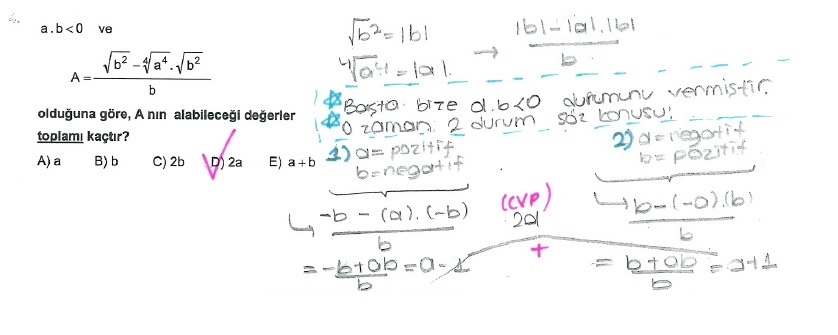 a.b<0 ve
A = (√b² - ⁴√a⁴ . √b²) / b
olduğuna göre, A nın alabileceği değerler
toplamı kaçtır?
A) a B) b C) 2b D) 2a E) a+b
√b² = |b|
⁴√a⁴ = |a|.
→ (|b| - |a|.|b|) / b
Başta bize a.b<0 durumunu vermiştir.
O zaman; 2 durum söz konusu;
1) a = pozitif
b = negatif
(-b - (a).(-b)) / b
= (-b+ab) / b = a-1
2) a = negatif
b = pozitif
(b - (-a).(b)) / b
= (b+ab) / b = a+1
(CVP)
2a
+